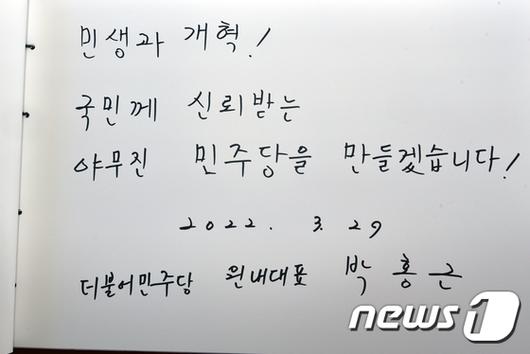 민생과 개혁!
국민께 신뢰받는
야무진 민주당을 만들겠습니다!
2022. 3. 29
더불어민주당 원내대표 박홍근
news1